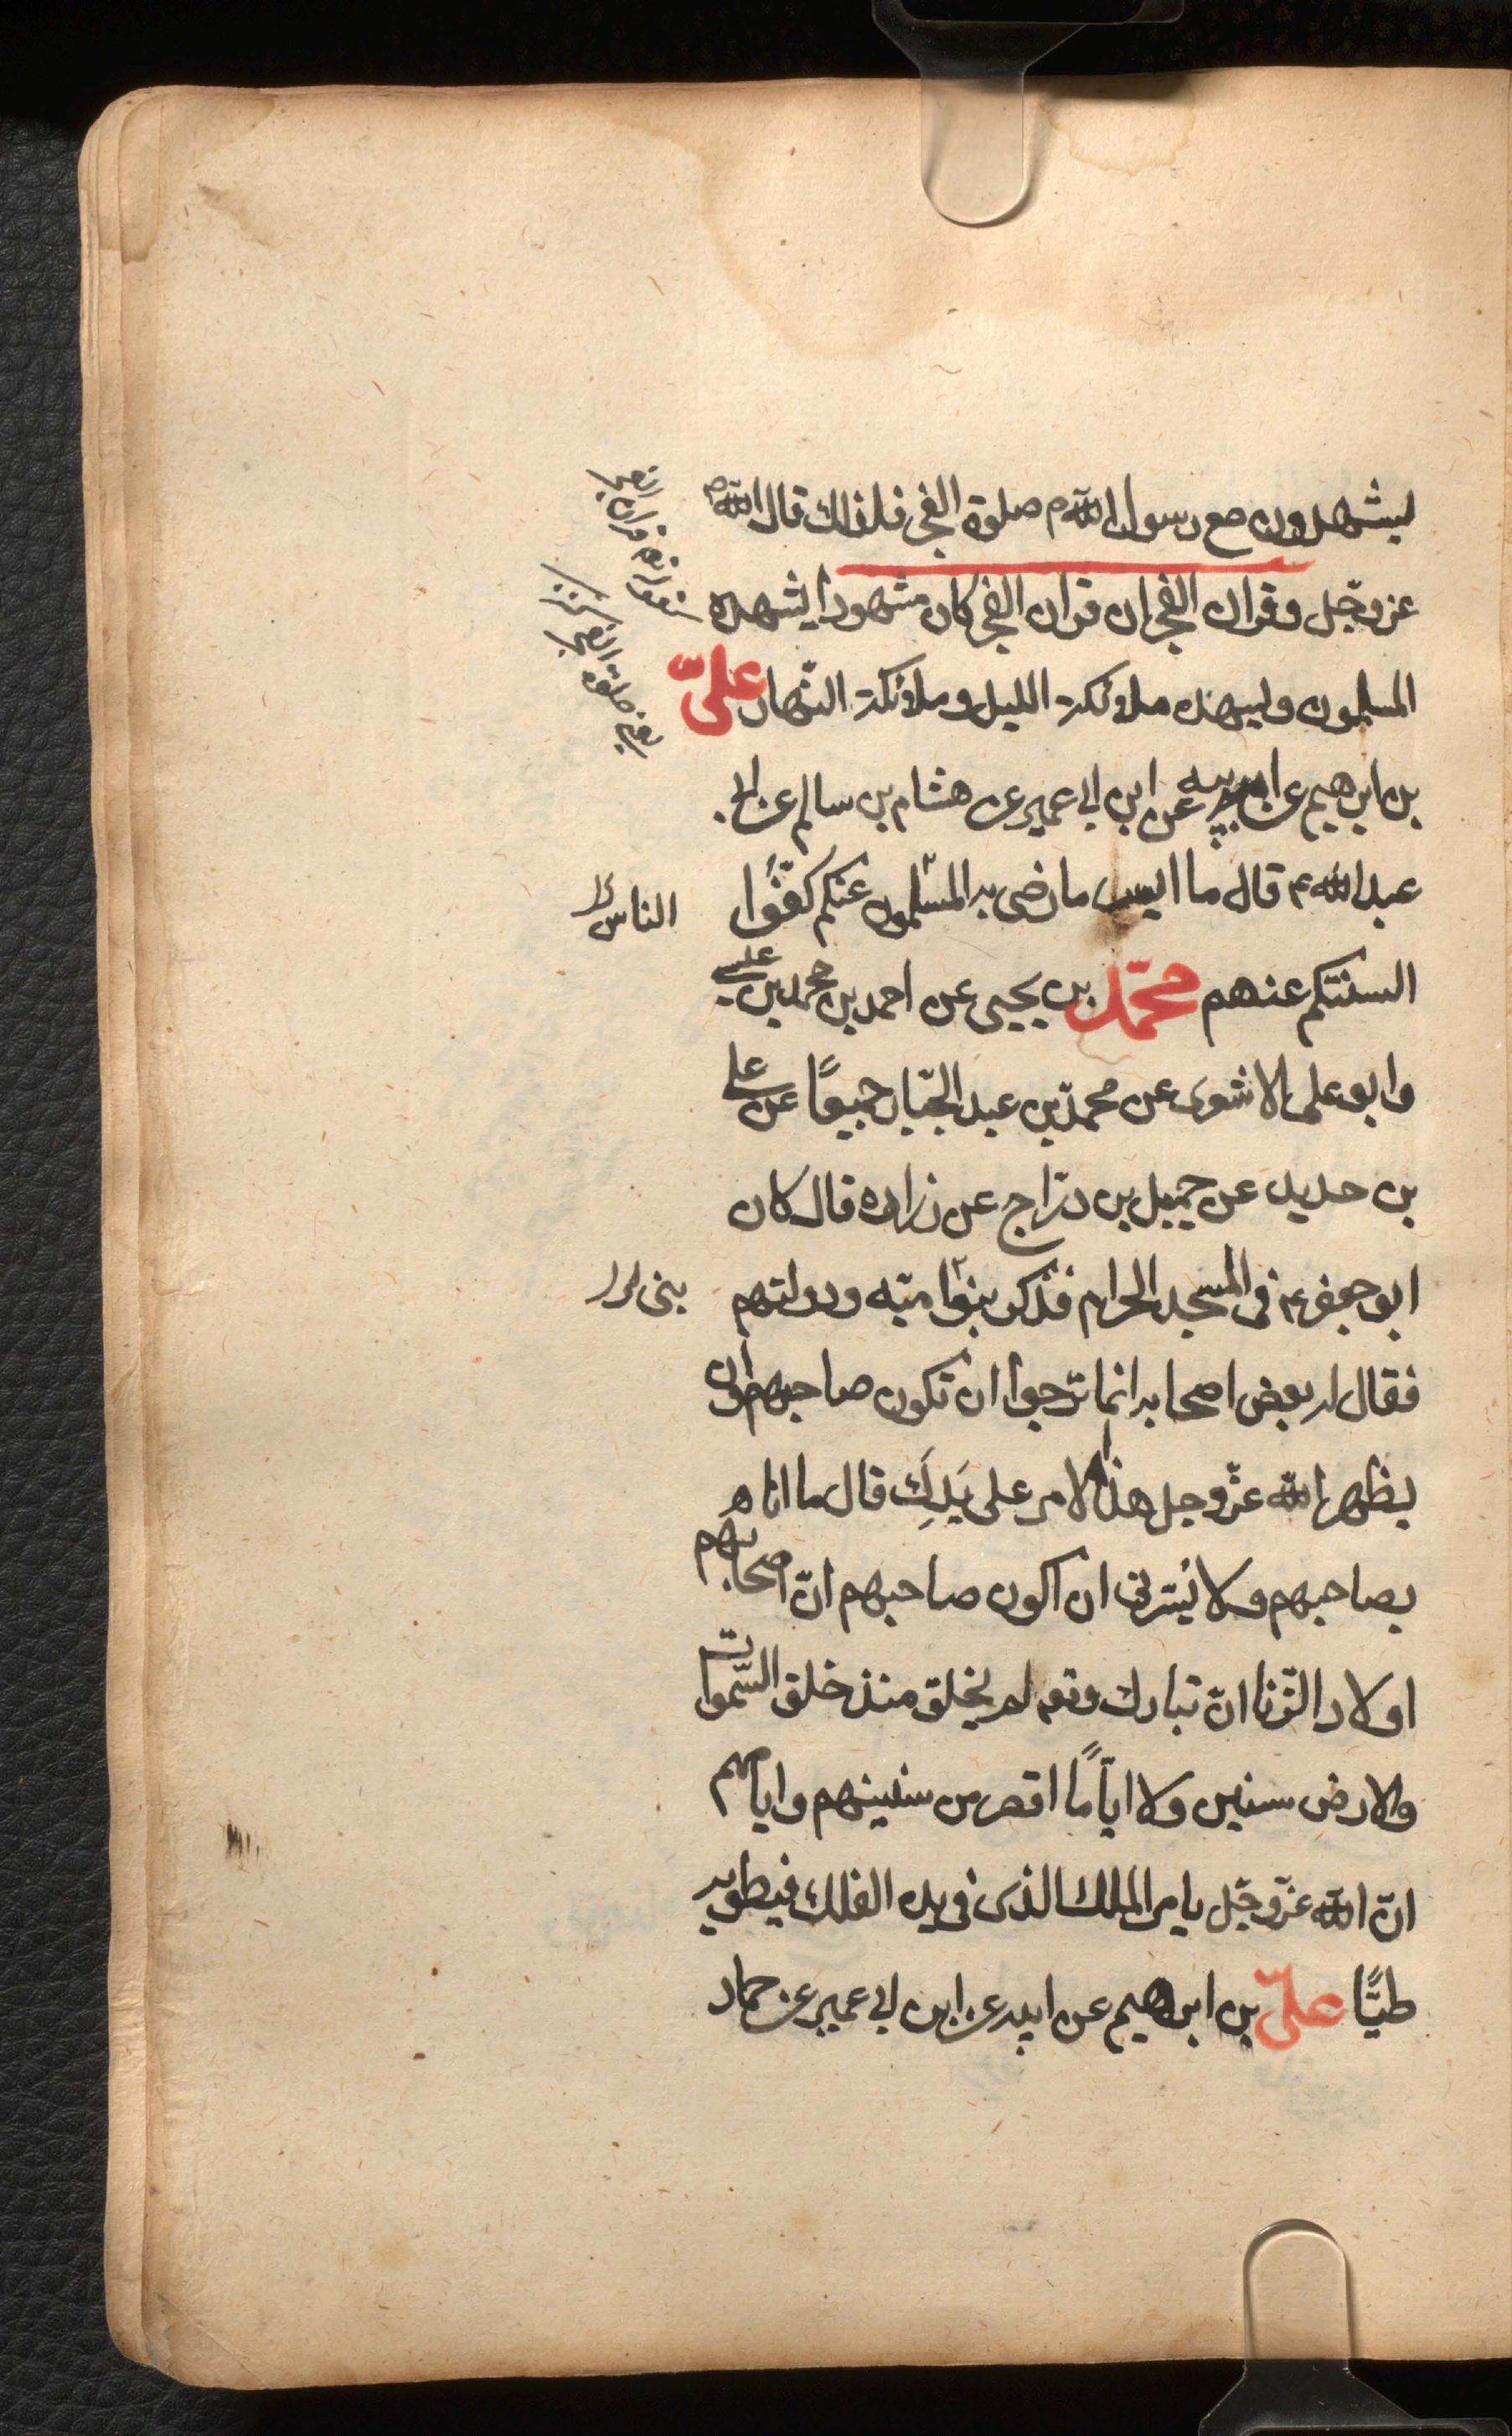 ليشهدون مع رسول الله ص صلوة الفجر فلذلك قال الله
عزوجّل وقران الفجر ان قران الفجر كان مشهودا يشهده
المسلمون وليهذه ملائكة الليل وملائكة النّهار علىّ
بن ابرهيم عن ابيه عن ابن ابى عمير عن هشام بن سالم عن ابى
عبد الله ع قال ما ايسر ما رضى به المسلمون عنكم كفّوا
السنتكم عنهم محمّد بن يحيى عن احمد بن محمد بن عيسى
وابو على الاشعرى عن محمّد بن عبد الجبّار جميعًا عن على
بن حديد عن جميل بن درّاج عن زراره قال كان
ابو جعفر ع فى المسجد الحرام فذكر بنوا ميّه ودولتهم
فقال له بعض اصحابه انما ترجوا ان تكون صاحبهم وان
يظهر الله عزّوجل هذا الامر على يَدِكَ قال ما انا
بصاحبهم ولا يُسرنى ان اكون صاحبهم انّ اصحابهم
اولاد الزّنا انّ تبارك وتع لم يخلق منذ خلق السّموات
والارض سنين ولا ايّامًا اقصر من سنينهم وايامهم
انّ الله عزّوجّل يامر الملك الذى فى يده الفلك فيطويه
طيًّا علىّ بن ابراهيم عن ابيه عن ابن ابى عمير عن حماد
الناس
بنى